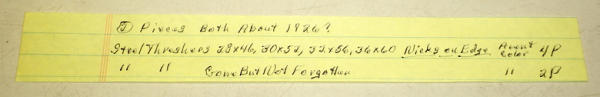 (5) Pieces Both About 1926?
Steel Threshers 28x46, 30x52, 32x56, 36x60 Nicks on Edge Accent Color 4P
" " Gone But Not Forgotten " 2P